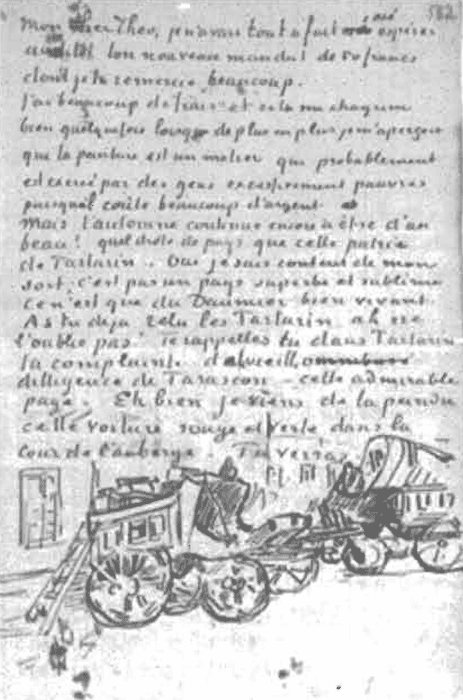 552
Mon cher Theo, je n'avais tout à fait osé espérer
aussitôt ton nouveau mandat de 50 francs
dont je te remercie beaucoup.
J'ai beaucoup de frais et cela me chagrine
bien quelquefois lorsque de plus en plus je m'aperçois
que la peinture est un métier que probablement
est exercé par des gens excessivement pauvres
puisqu'il coûte beaucoup d'argent
Mais l'automne continue encore à être d'un
beau! quel drôle de pays que cette patrie
de Tartarin. Oui je suis content de mon
sort, c'est pas un pays superbe et sublime
ce n'est que du Daumier bien vivant.
As tu déjà relu les Tartarin ah ne
l'oublie pas! te rappelles tu dans Tartarin
la complainte de la vieille
diligence de Tarascon – cette admirable
page. Eh bien je viens de la peindre
cette voiture rouge et verte dans la
cour de l'auberge. Tu verras